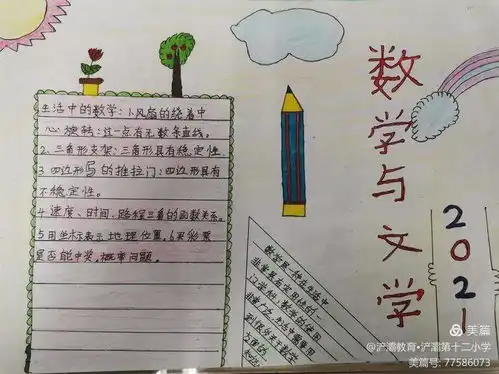 生活中的数学：1.风扇的绕着中
心旋转：过一点有无数条直线。
2.三角形支架：三角形具有稳定性
3 四边形写的推拉门：四边形具有
不稳定性。
4 速度、时间、路程三角的函数关系。
5 用坐标表示地理位置，6.买彩票
是否能中奖，概率问题。
数学与文学
2021
数学是一种在生活中
非常具有实用性的一
门学科，数学的使用
美篇
@浐灞教育·浐灞第十二小学
美篇号: 77586073